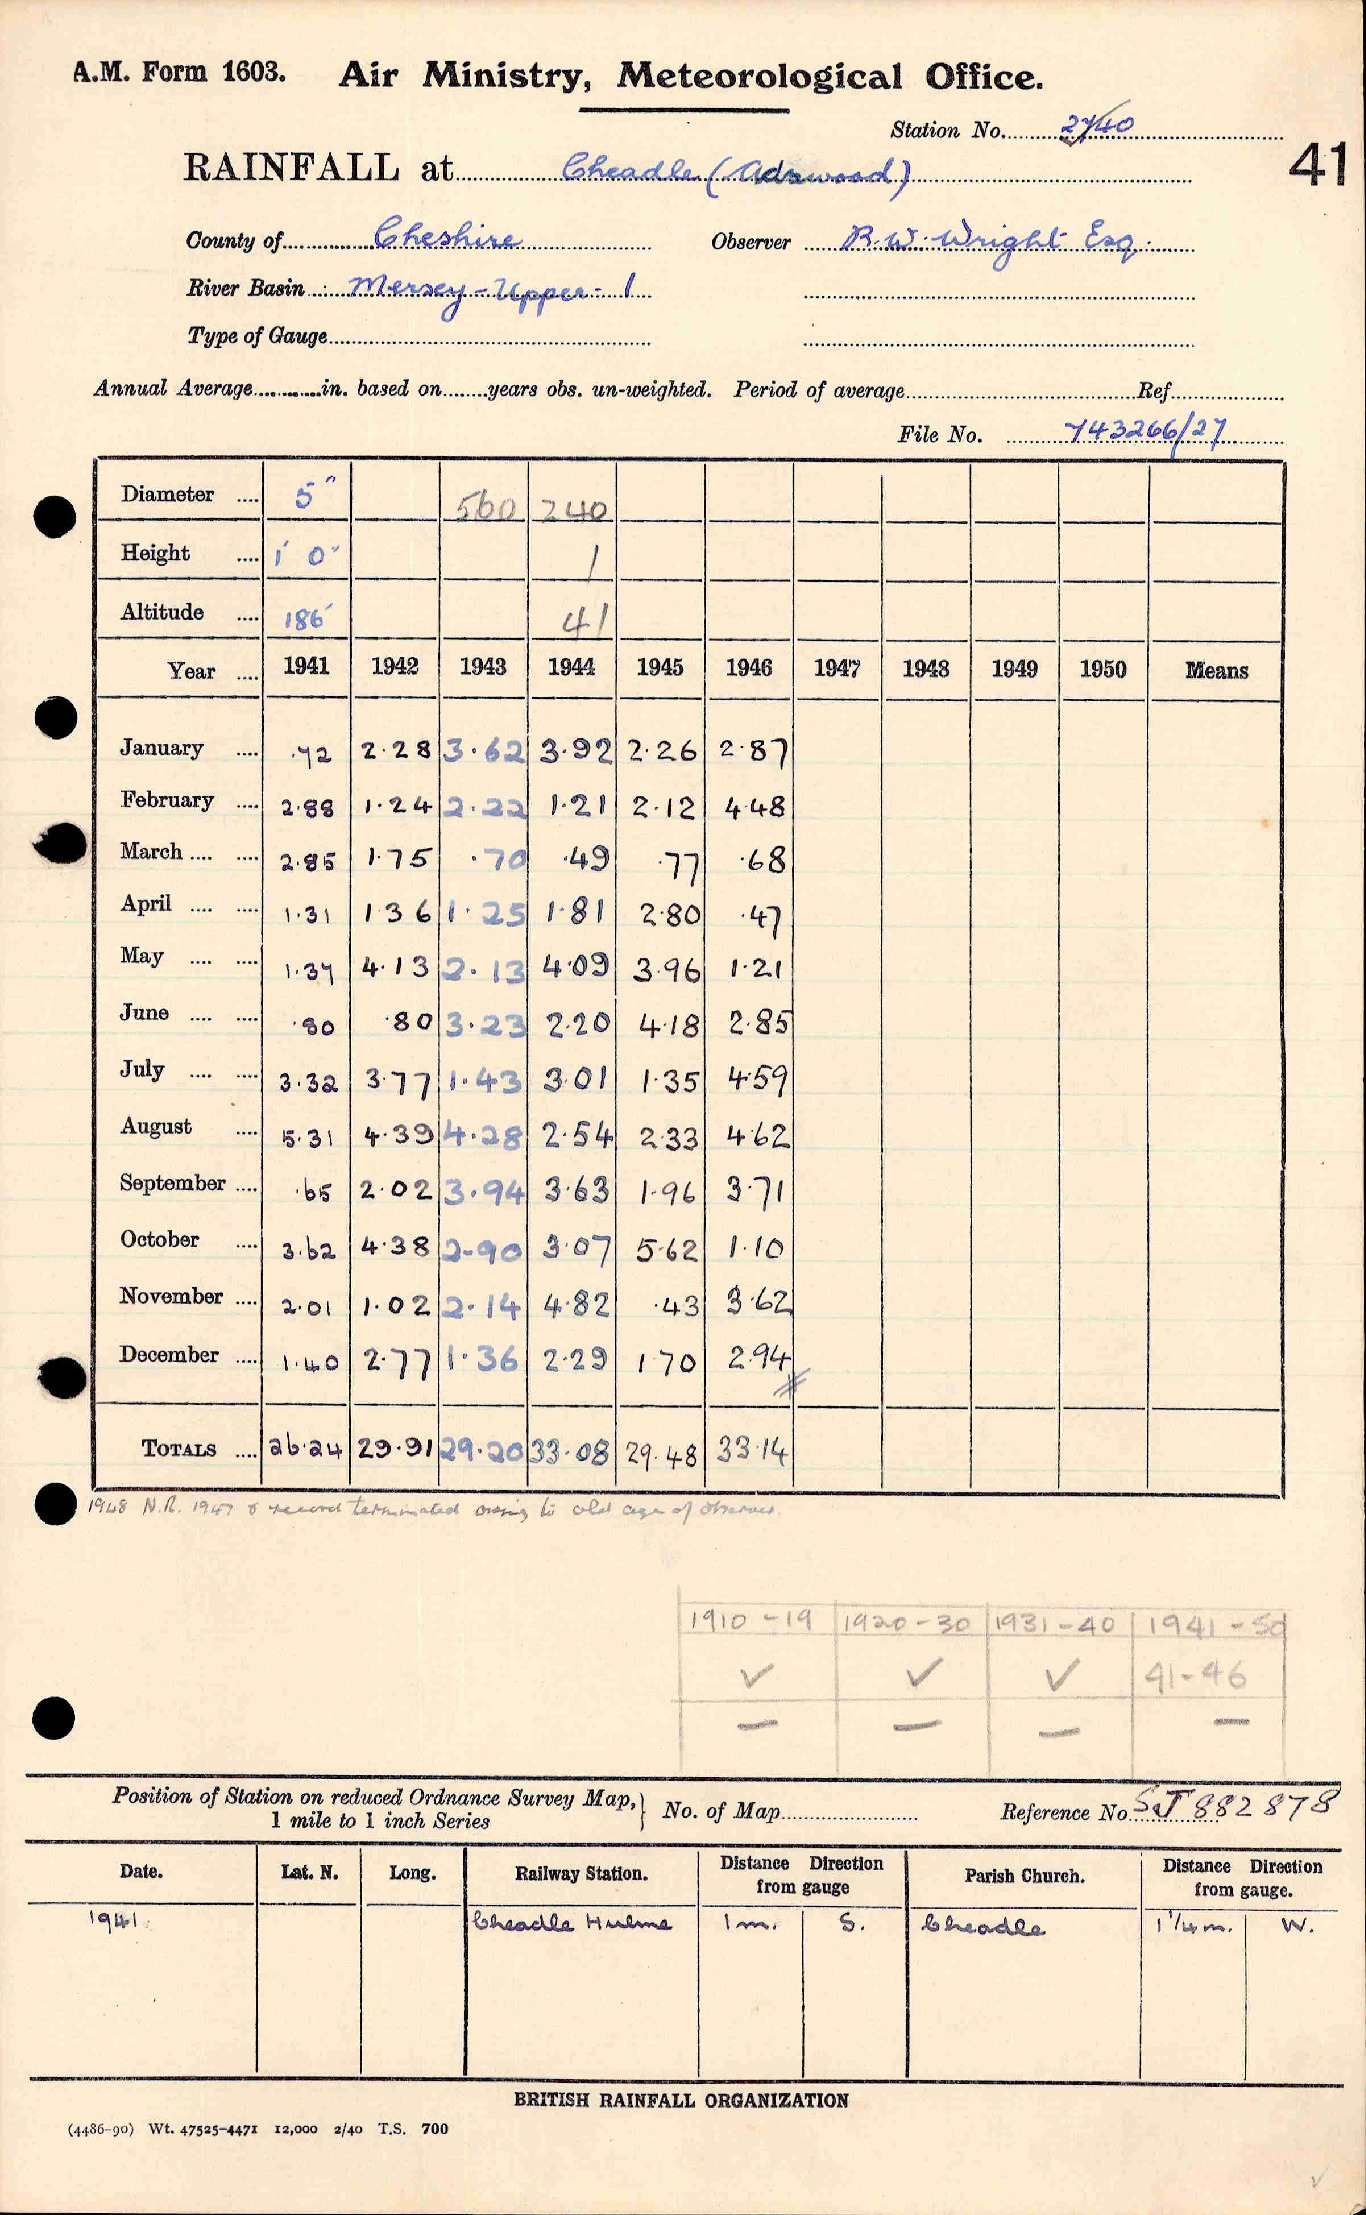 A.M. Form 1603. Air Ministry, Meteorological Office.
Station No. 2740
41
RAINFALL at Cheadle (Adswood)
County of Cheshire Observer R. W. Wright Esq.
River Basin Mersey - Upper - 1
Type of Gauge
Annual Average in. based on years obs. un-weighted. Period of average Ref.
File No. 743266/27
Diameter 5" 560 240
Height 1' 0" 1
Altitude 186' 41
Year 1941 1942 1943 1944 1945 1946 1947 1948 1949 1950 Means
January .72 2.28 3.62 3.92 2.26 2.87
February 2.88 1.24 2.22 1.21 2.12 4.48
March 2.85 1.75 .70 .49 .77 .68
April 1.31 1.36 1.25 1.81 2.80 .47
May 1.37 4.13 2.13 4.09 3.96 1.21
June .80 .80 3.23 2.20 4.18 2.85
July 3.32 3.77 1.43 3.01 1.35 4.59
August 5.31 4.39 4.28 2.54 2.33 4.62
September .65 2.02 3.94 3.63 1.96 3.71
October 3.62 4.38 2.90 3.07 5.62 1.10
November 2.01 1.02 2.14 4.82 .43 3.62
December 1.40 2.77 1.36 2.29 1.70 2.94
TOTALS 26.24 29.91 29.20 33.08 29.48 33.14
1948 N.R. 1947 & record terminated owing to old age of observer.
1910-19 1920-30 1931-40 1941-50
✓ ✓ ✓ 41-46
— — — —
Position of Station on reduced Ordnance Survey Map, 1 mile to 1 inch Series } No. of Map Reference No. SJ 882 878
Date. Lat. N. Long. Railway Station. Distance Direction from gauge Parish Church. Distance Direction from gauge.
1941 Cheadle Hulme 1 m. S. Cheadle 1 1/4 m. W.
BRITISH RAINFALL ORGANIZATION
(4486-90) Wt. 47525-4471 12,000 2/40 T.S. 700